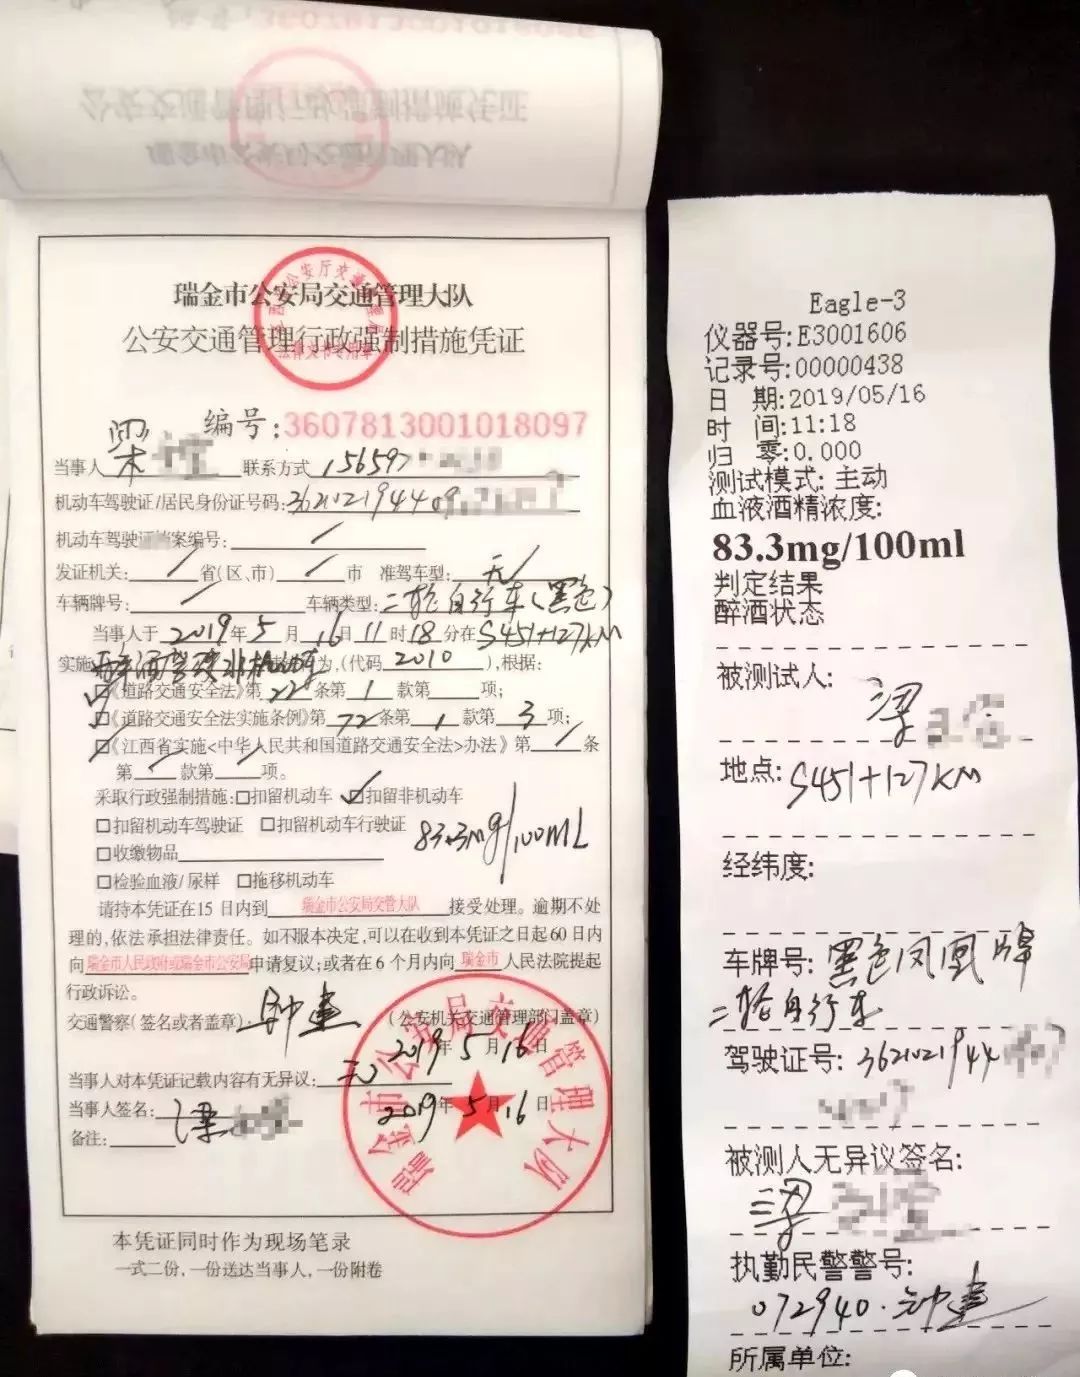 瑞金市公安局交通管理大队
公安交通管理行政强制措施凭证
编号:3607813001018097
当事人 梁 联系方式 156597
机动车驾驶证/居民身份证号码:362102194409
机动车驾驶证档案编号: /
发证机关: / 省(区、市) / 市 准驾车型: 无/
车辆牌号: / 车辆类型: 二轮自行车(黑色)
当事人于 2019 年 5 月 16 日 11 时 18 分在 S451+127KM
实施 醉酒驾驶非机动车 为,(代码 2010 ),根据:
☑《道路交通安全法》第 22 条第 1 款第 项;
☑《道路交通安全法实施条例》第 72 条第 1 款第 3 项;
□《江西省实施<中华人民共和国道路交通安全法>办法》第 / 条
第 / 款第 / 项。
采取行政强制措施:□扣留机动车 ☑扣留非机动车
□扣留机动车驾驶证 □扣留机动车行驶证
83.3mg/100ML
□收缴物品
□检验血液/尿样 □拖移机动车
请持本凭证在15日内到 瑞金市公安局交管大队 接受处理。逾期不处
理的,依法承担法律责任。如不服本决定,可以在收到本凭证之日起60日内
向 瑞金市人民政府或瑞金市公安局 申请复议;或者在6个月内向 瑞金市 人民法院提起
行政诉讼。
交通警察(签名或者盖章) 钟建 (公安机关交通管理部门盖章)
2019年5月16日
当事人对本凭证记载内容有无异议: 无
当事人签名: 梁 2019年5月16日
备注:
瑞金市公安局交通管理大队
本凭证同时作为现场笔录
一式二份,一份送达当事人,一份附卷
Eagle-3
仪器号:E3001606
记录号:00000438
日 期:2019/05/16
时 间:11:18
归 零:0.000
测试模式:主动
血液酒精浓度:
83.3mg/100ml
判定结果
醉酒状态
被测试人:
梁
地点: S451+127KM
经纬度:
车牌号: 黑色凤凰牌
二轮自行车
驾驶证号: 3621021944
被测人无异议签名:
梁
执勤民警警号:
072940·钟建
所属单位: